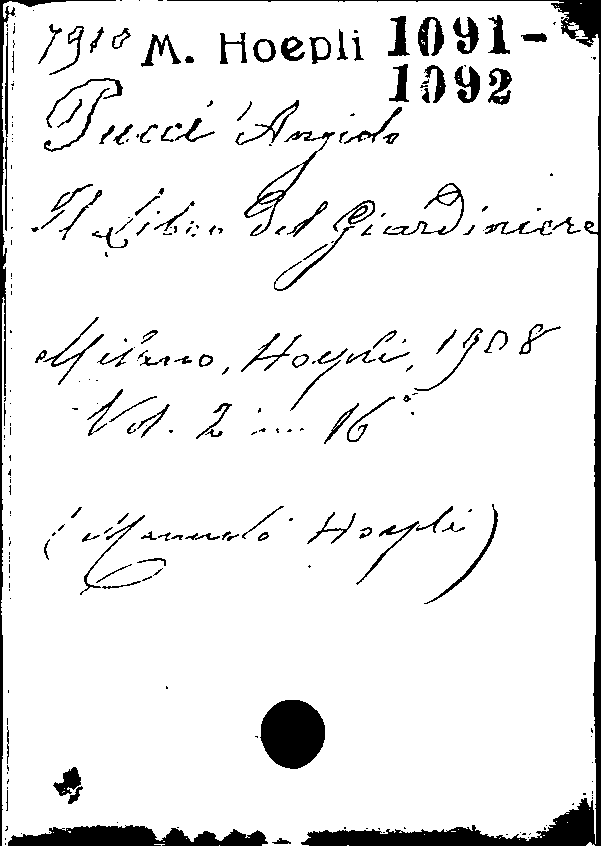 7910 M. Hoepli 1091-
1092
Pucci Angiolo
Il Libro del Giardiniere
Milano, Hoepli, 1908
Vol. 2 in 16°
(Manuali Hoepli)